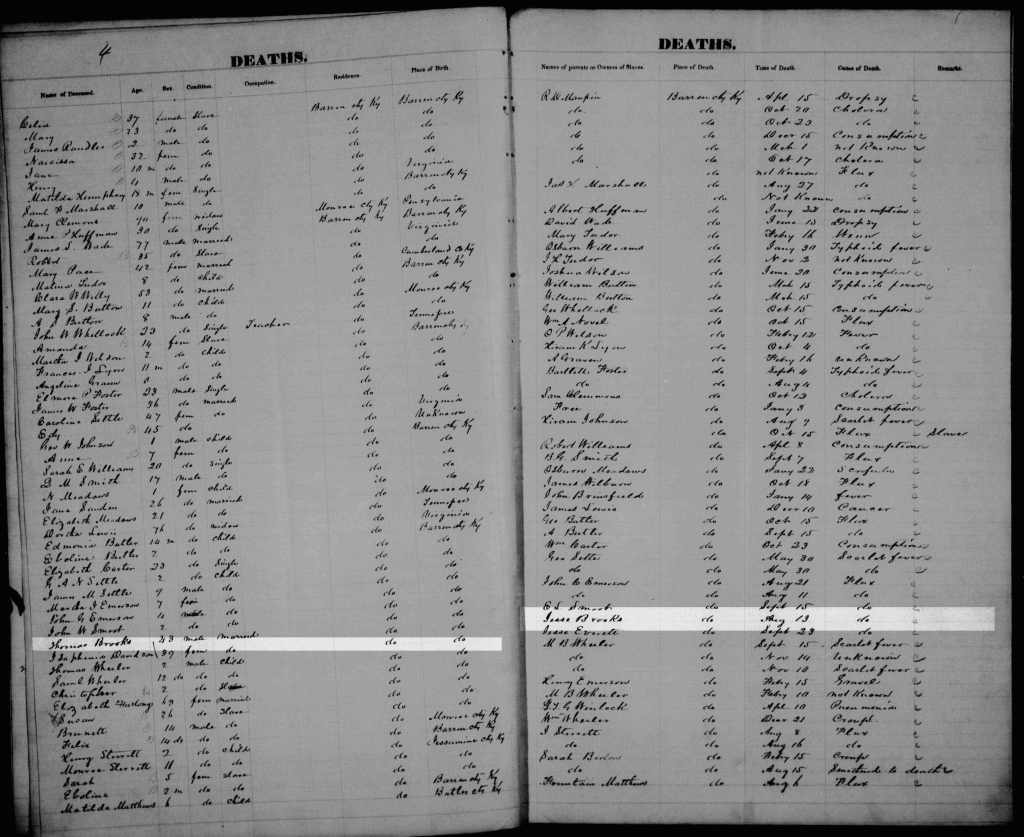 4
DEATHS.
Name of Deceased. Age. Sex. Condition. Occupation. Residence. Place of Birth.
Celia 37 female Slave Barren cty Ky Barren cty Ky
Mary 23 do do do do
James Randle 2 male do do do
Narcissa 32 fem do do do
Jane 10 m do do do do
Henry 4 male do do Virginia
Matilda Humphrey 18 m fem Single do Barren cty Ky
Saml H Marshall 10 male do do do
Mary Clemons 70 fem widow Monroe cty Ky Pensylvania
Anne P Huffman 30 do Single Barren cty Ky Barren cty Ky
James S. Wade 77 male married do Virginia
Robert 35 do Slave do do
Mary Pace 42 fem married do Cumberland C Ky
Malina Tudor 8 do child do Barren cty Ky
Clara W Willy 53 do married do do
Mary S. Button 11 do child do Monroe cty Ky
A S Button 8 male do do do
John W Whitlock 23 do Single Teacher do Tennessee
Amanda 14 fem Slave do Barren cty
Martha J Wilson 2 do child do do
Frances J Lyon 11 m do do do do
Angeline Graven 8 do do do do
Elmore P Foster 23 male Single do do
James W Foster 36 do married do do
Caroline Settle 47 fem do do Virginia
45 do do Unknown
Geo W Johnson 1 male child do Barren cty Ky
Anne 7 fem do do do
Sarah E Williams 20 do Single do do
D M Smith 17 male do do do
N Meadows 1 fem child do do
Jane 26 do married do Monroe cty Ky
Elizabeth Meadows 21 do do do Tennessee
Lewis 76 do widow do Virginia
Edmonia Butler 14 m do child do Barren cty Ky
Eboline Butler 2 do do do do
Elizabeth Carter 23 do Single do do
G A N Settle 2 do child do do
James M Settle 7 male do do do
Martha J Emerson 7 fem do do do
John G Emerson 4 male do do do
John W Smoot 2 do do do do
Thomas Brooks 43 male married do do
Davidson 39 fem do do do
Thomas Wheeler 2 male child do do
Saml Wheeler 12 do do do do
Christopher 2 do Slave do do
Elizabeth 69 fem married do do
Susan 26 do Slave do do
Brunett 14 male do do Monroe cty Ky
Felix 14 do do do Barren cty Ky
Henry Sterrett 2 do childe do Jessamine cty Ky
Monroe Sterrett 11 do do do do
Sarah 5 fem slave do do
Eboline 2 m do do do Barren cty Ky
Matilda Matthews 6 do child do Butler cty Ky
DEATHS.
Names of parents or Owners of Slaves. Place of Death. Time of Death. Cause of Death. Remarks.
R D Maupin Barren cty Ky Apl 15 Dropsy
do do Oct 20 Cholera
do do Oct 23 do
do do Decr 15 Consumption
do do Mch 1 not Known
do do Oct 17 Cholera
do not Known Flux
Jas H Marshall do Aug 27 do
do Not Known do
Albert Huffman do Jany 22 consumption
David Wade do June 15 Dropsy
Mary Tudor do Feby 16 Worm
Osborn Williams do Jany 30 Typhoid fever
J H Tudor do Nov 2 not Know
Joshua Wilson do June 20 Consumption
William Button do Mch 15 Typhoid fever
William Button do Mch 15 do
Geo Whitlock do Oct 15 Consumption
Wm S Novel do Oct 15 Flux
O P Wilson do Feby 12 Fever
Hiram K Lyon do Oct 4 do
A Graven do Feby 16 unknown
Bartlett Foster do Sept 4 Typhoid fever
do do Aug 4 do
Sam Clemmons do Oct 12 Cholera
Pace do Jany 3 Consumption
Hiram Johnson do Aug 9 Scarlet fever
do Oct 15 Flux Slave
Robert Williams do Apl 8 Consumption
B G Smith do Sept 7 Flux
Osburn Meadows do Jany 22 Scrofula
James Wilburn do Oct 18 Flux
John do Jany 14 fever
James Lewis do Decr 10 Cancer
Geo Butler do Oct 15 Flux
A Butler do Sept 15 do
Wm Carter do Oct 23 Consumption
Geo Settle do May 30 Scarlet fever
do do May 30 do
John C Emerson do Aug 21 Flux
do do Aug 11 do
E L Smoot do Sept 15 do
Jesse Brooks do Aug 13 do
Jesse Everett do Sept 23 do
M B Wheeler do Sept 15 Scarlet fever
do do Nov 14 Unknown
do do Nov 10 Scarlet fever
Henry Emerson do Feby 15 Gravel
M B Wheeler do Feby 10 not Known
do Apl 10 Pneumonia
Wm Wheeler do Decr 21 Croup
J Sterrett do Aug 8 Flux
do do Aug 16 do
Sarah do Feby 15 Croup
do do Aug 15 to death
Fountain Matthews do Aug 6 Flux